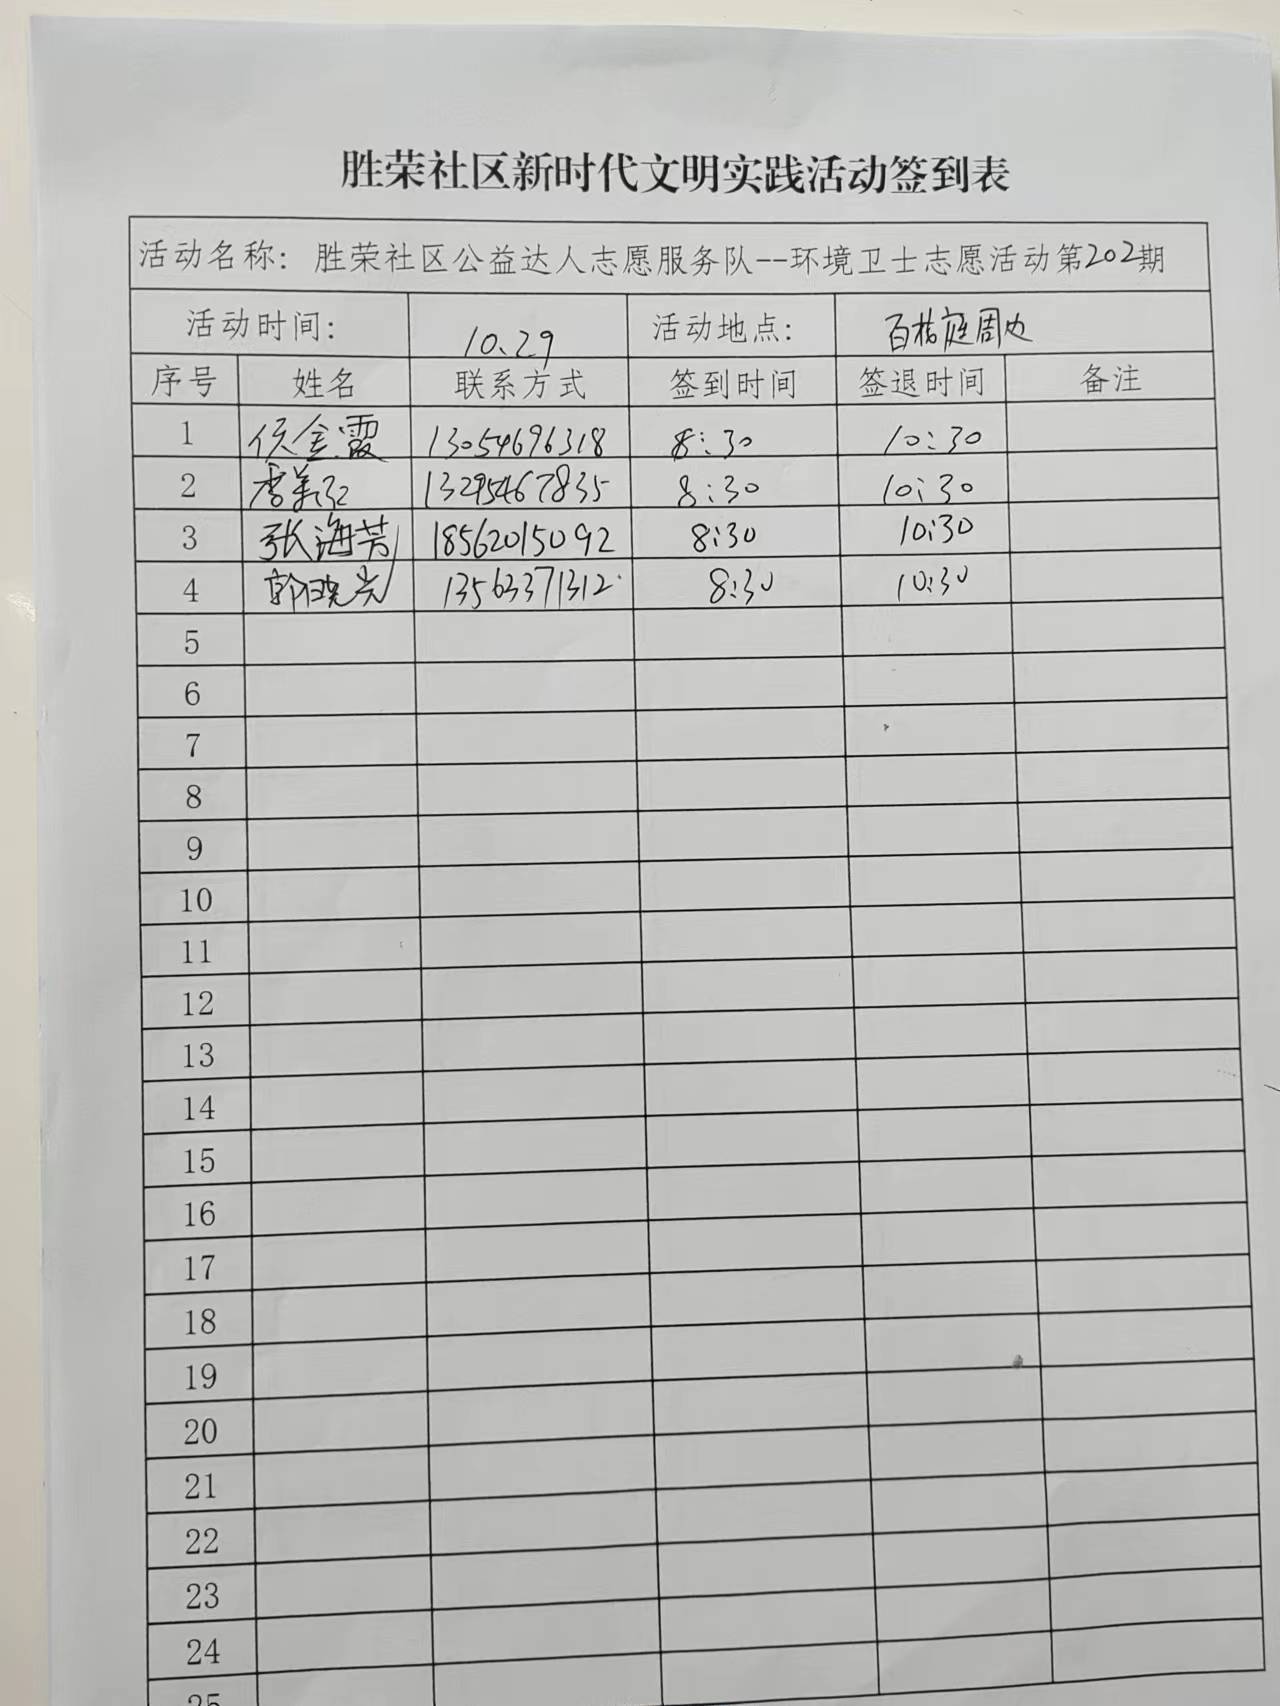 胜荣社区新时代文明实践活动签到表
活动名称：胜荣社区公益达人志愿服务队--环境卫士志愿活动第202期
活动时间： 10.29 活动地点： 百桔庭周边
序号 姓名 联系方式 签到时间 签退时间 备注
1 侯金霞 13054696318 8:30 10:30
2 李美红 13295467835 8:30 10:30
3 张海芳 18562015092 8:30 10:30
4 郭晓光 13563371312 8:30 10:30
5
6
7
8
9
10
11
12
13
14
15
16
17
18
19
20
21
22
23
24
25